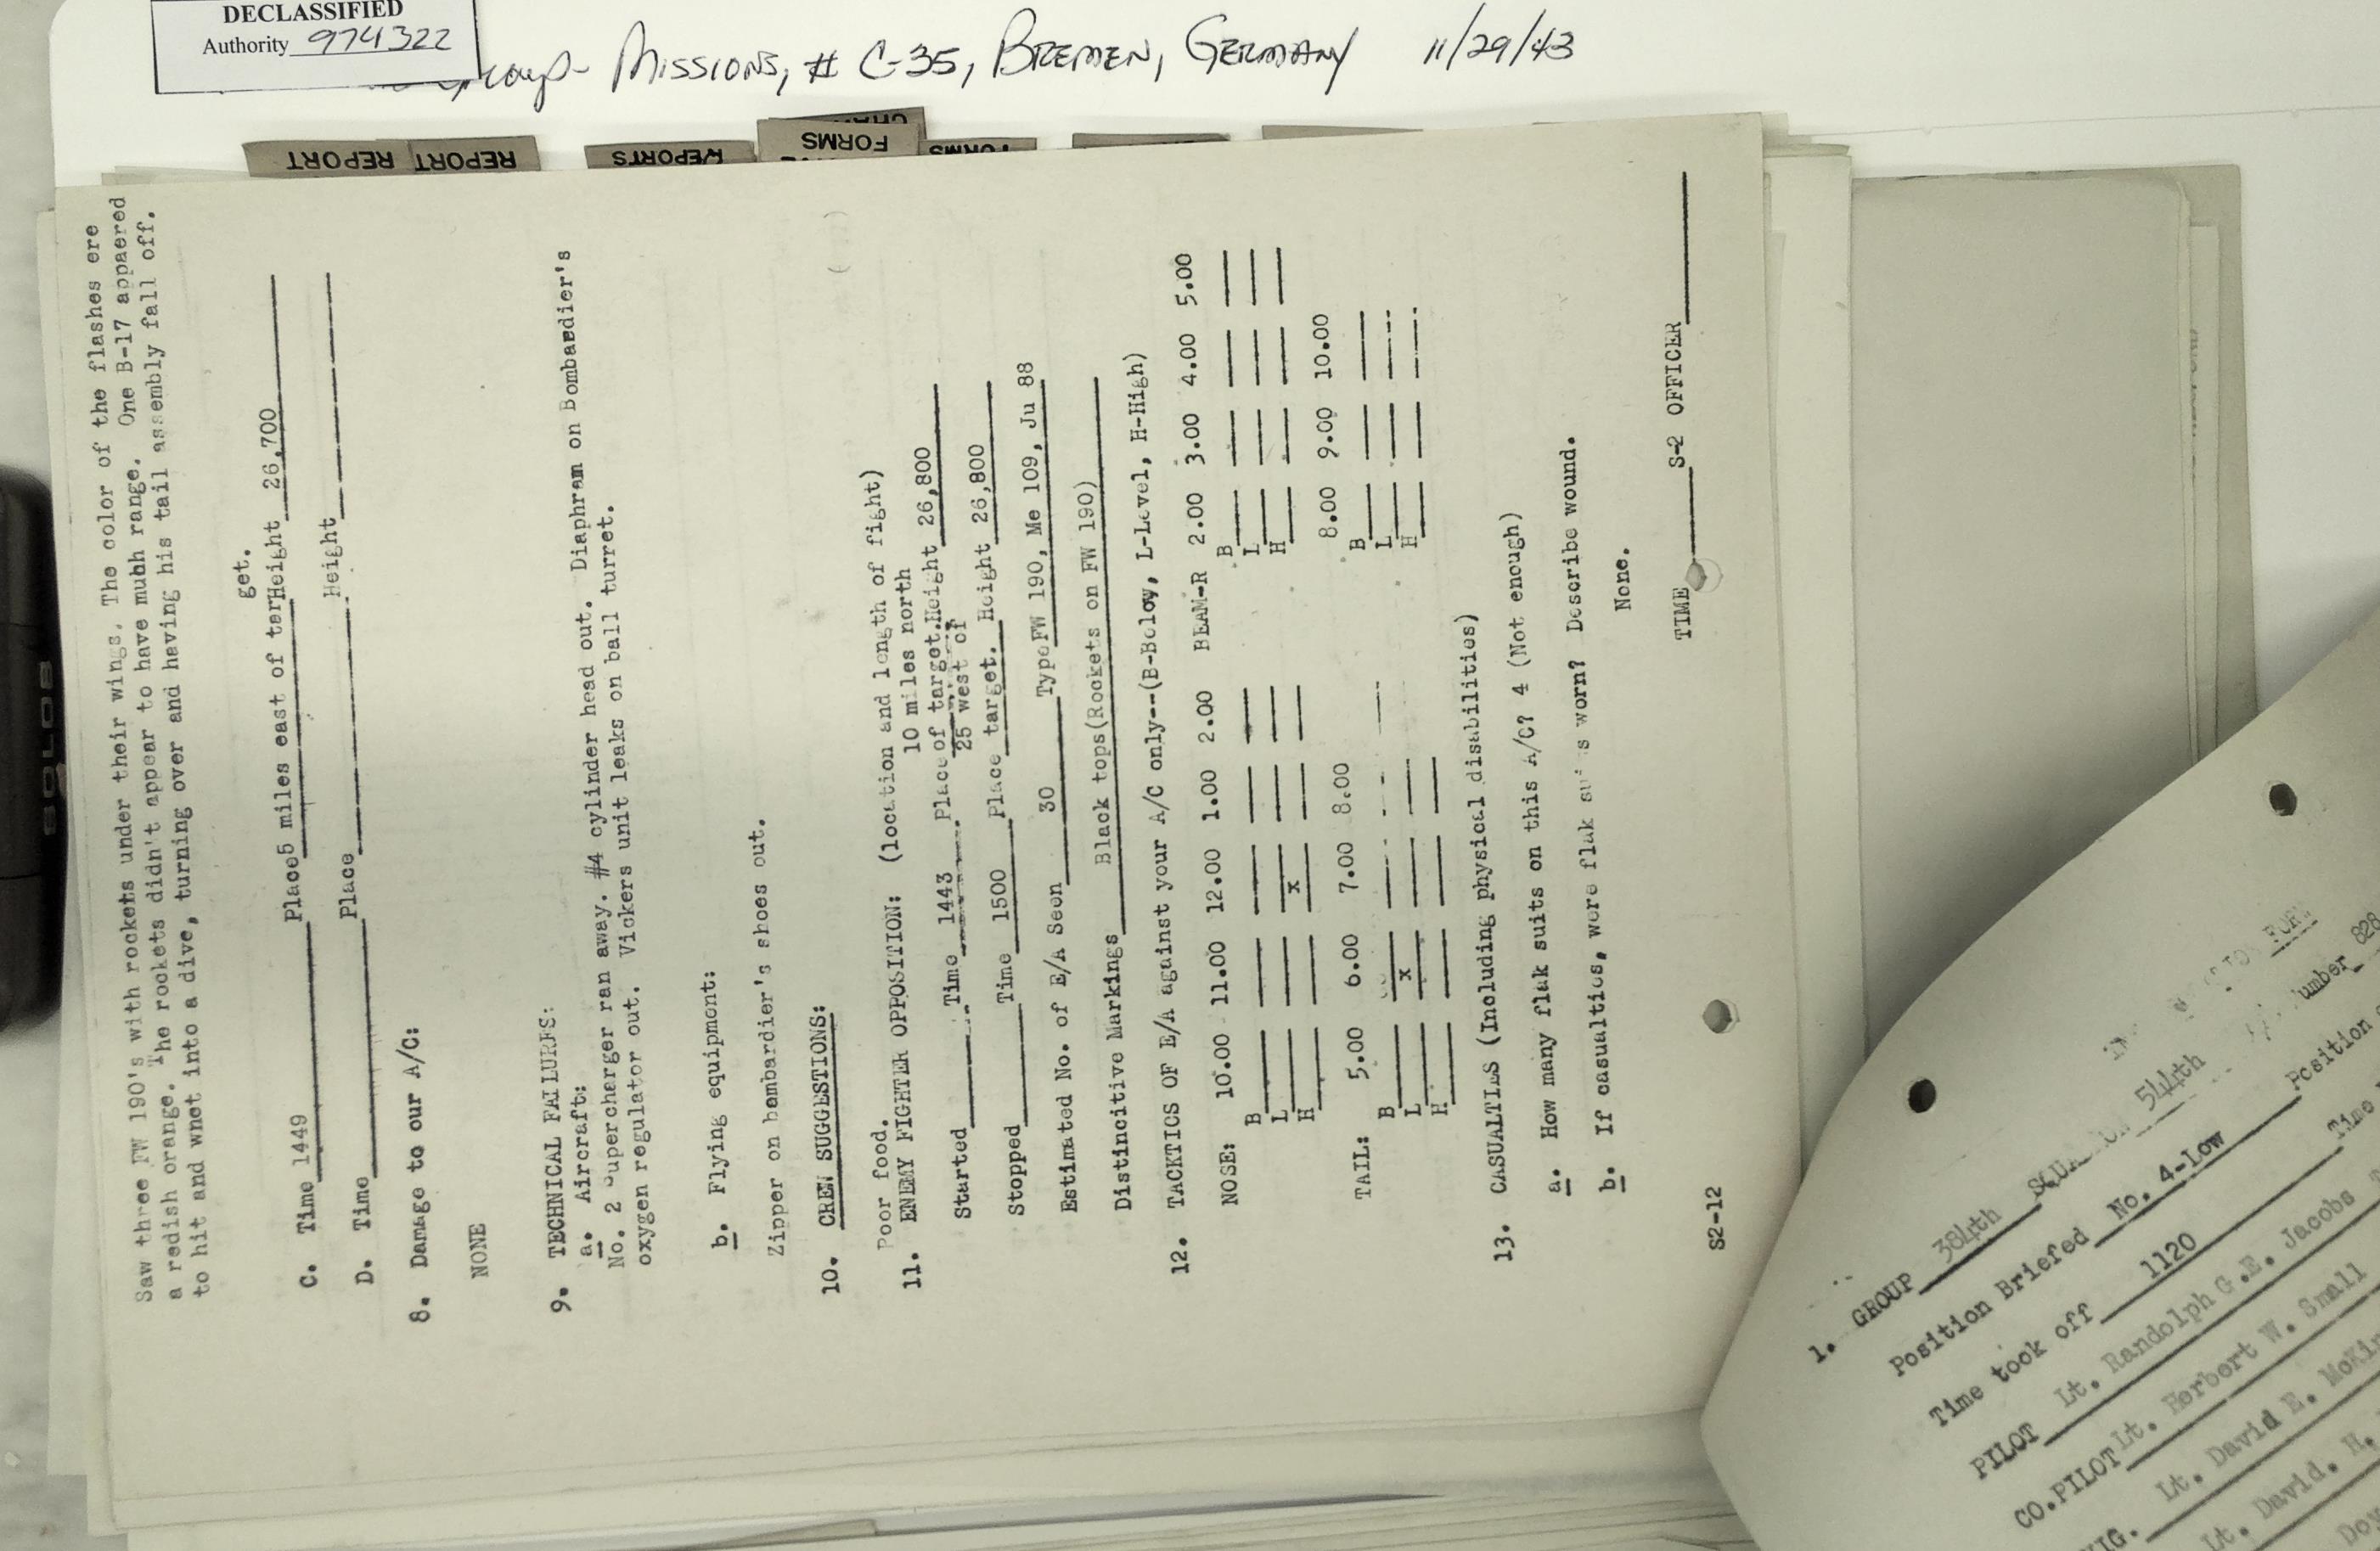 DECLASSIFIED
Authority 974322
Group- Missions, # C-35, Bremen, Germany 11/29/43
REPORT REPORT
REPORTS
FORMS
FORMS
SOLOS
Saw three FW 190's with rockets under their wings. The color of the flashes ere
a redish orange. The rockets didn't appear to have much range. One B-17 appaered
to hit and wnet into a dive, turning over and having his tail assembly fall off.
get.
C. Time 1449 Place 5 miles east of tar Height 26,700
D. Time Place Height
8. Damage to our A/C:
NONE
9. TECHNICAL FAILURES:
a. Aircraft:
No. 2 supercharger ran away. #4 cylinder head out. Diaphram on Bombaedier's
oxygen regulator out. Vickers unit leaks on ball turret.
b. Flying equipment:
Zipper on bembardier's shoes out.
10. CREW SUGGESTIONS:
Poor food.
11. ENEMY FIGHTER OPPOSITION: (location and length of fight)
10 miles north
Started Time 1443 Place of target. Height 26,800
25 west of
Stopped Time 1500 Place target. Height 26,800
Estimated No. of E/A Seen 30 Type FW 190, Me 109, Ju 88
Distincitive Markings Black tops(Rockets on FW 190)
12. TACKTICS OF E/A against your A/C only--(B-Below, L-Level, H-High)
NOSE: 10.00 11.00 12.00 1.00 2.00 BEAM-R 2.00 3.00 4.00 5.00
B B
L L
H x H
TAIL: 5.00 6.00 7.00 8.00 8.00 9.00 10.00
B B
L x L
H H
13. CASUALTIES (Including physical disabilities)
a. How many flak suits on this A/C? 4 (Not enough)
b. If casualties, were flak suits worn? Describe wound.
None.
TIME S-2 OFFICER
S2-12
FORM
1. GROUP 384th SQUADRON 544th umber 828
Position Briefed No. 4-Low Position
Time took off 1120 Time
PILOT Lt. Randolph G.E. Jacobs
CO.PILOT Lt. Herbert W. Small
IG. Lt. David E.
Lt. David. H.